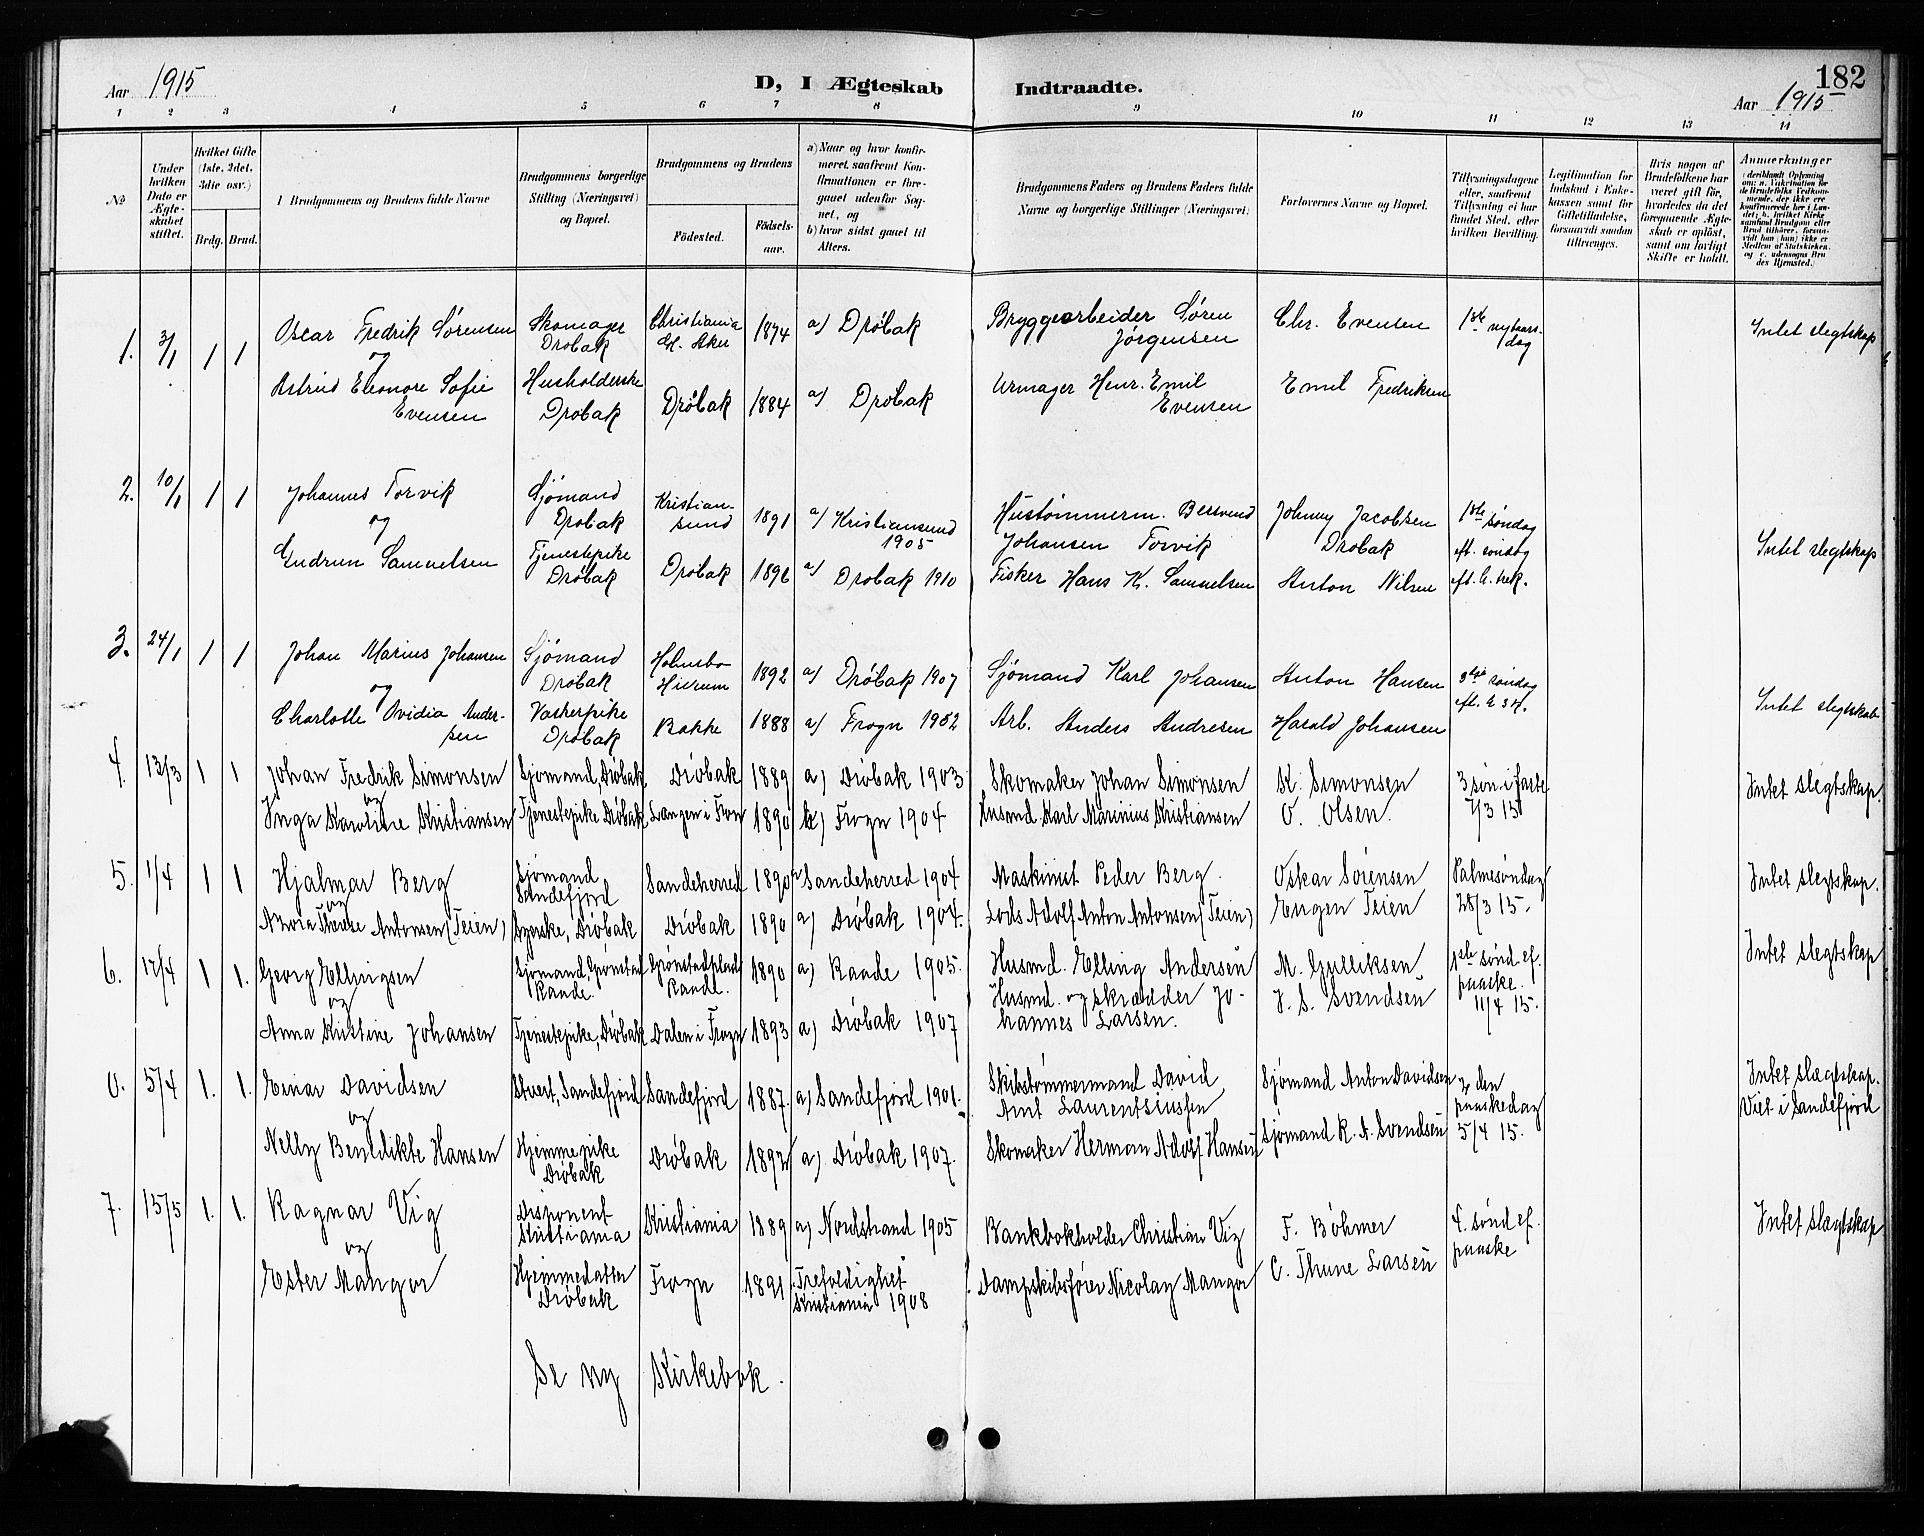 Aar 1915
D, I Ægteskab Indtraadte.
182
Aar 1915
1 2 3 4 5 6 7 8 9 10 11 12 13 14
No
Under hvilken Dato er Ægteskabet stiftet.
Hvilket Gifte (1ste, 2det, 3die osv.)
Brdg. Brud.
1 Brudgommens og Brudens fulde Navne
Brudgommens borgerlige Stilling (Næringsvei) og Bopæl.
Brudgommens og Brudens
Fødested.
Fødselsaar.
a) Naar og hvor konfirmeret, saafremt Konfirmationen er foregaaet udenfor Sognet, og
b) hvor sidst gaaet til Alters.
Brudgommens Faders og Brudens Faders fulde Navne og borgerlige Stillinger (Næringsvei)
Forlovernes Navne og Bopæl.
Tillysningsdagene eller, saafremt Tillysning ei har fundet Sted, efter hvilken Bevilling.
Legitimation for Indskud i Enkekassen samt for Giftetilladelse, forsaavidt saadan tiltrænges.
Hvis nogen af Brudefolkene har været gift før, hvorledes da det foregaaende Ægteskab er opløst, samt om lovligt Skifte er holdt.
Anmerkninger
1. 3/1 1 1
Oscar Fredrik Sørensen
og
Astrid Eleonore Sofie
Evensen
Skomager
Drøbak
Husholderske
Drøbak
Christiania
Gl. Aker
Drøbak
1874
1884
a) Drøbak
a) Drøbak
Bryggearbeider Søren
Jørgensen
Urmager Henr. Emil
Evensen
Chr. Evensen
Emil Fredriksen
1ste nytaarsdag
Intet slegtskap
2. 10/1 1 1
Johannes Torvik
og
Gudrun Samuelsen
Sjømand
Drøbak
Tjenestepike
Drøbak
Kristiansund
Drøbak
1891
1896
a) Kristiansund
1905
a) Drøbak 1910
Hustømmerm. Bersvend
Johansen Torvik
Fisker Hans K. Samuelsen
Johnny Jacobsen
Drøbak
Anton Nilsen
1ste søndag
eft. søndag
eft. h. trek.
Intet slegtskap
3. 24/1 1 1
Johan Marius Johansen
og
Charlotte Ovidia Andersen
Sjømand
Drøbak
Vaskerpike
Drøbak
Holmsbo
Hurum
Bakke
1892
1888
a) Drøbak 1907
a) Frogn 1902
Sjømand Karl Johansen
Arb. Anders Andresen
Anton Hansen
Harald Johansen
3dje søndag
eft. h 3 k.
Intet slegtskab
4. 13/3 1 1
Johan Fredrik Simonsen
og
Inga Karoline Kristiansen
Sjømand, Drøbak
Tjenestepike Drøbak
Drøbak
Langen i Fron
1889
1890
a) Drøbak 1903
a) Frogn 1904
Skomaker Johan Simonsen
Husmd Karl Marinius Kristiansen
K. Simonsen
O. Olsen.
3 søn i faste
7/3 15
Intet slegtskap.
5. 1/4 1 1
Hjalmar Berg
og
Azora Therese Antonsen (Teien)
Sjømand
Sandefjord
Syerske, Drøbak
Sandeherred
Drøbak
1890
1890
a) Sandeherred 1904
a) Drøbak 1904.
Maskinist Peder Berg.
Lods Adolf Anton Antonsen (Teien)
Oskar Sørensen
Eugen Teien
Palmesøndag
28/3 15.
Intet slegtskap.
6. 17/4 1 1.
Georg Ellingsen
og
Anna Kristine Johansen
Sjømand Grønstad
Raade.
Tjenestepike, Drøbak
Grønstadplads
Raade.
Dalen i Frogn
1890
1893
a) Raade 1905.
a) Drøbak 1907
Husmd. Elling Andersen
Husmd. og skrædder Johannes Larsen.
M. Gulliksen
J. S. Svendsen
1ste sønd ef.
paaske.
11/4 15.
Intet slegtskap
0. 5/4 1. 1.
Einar Davidsen
og
Nelly Bendikte Hansen
Stuert, Sandefjord
Hjemmepike
Drøbak
Sandefjord
Drøbak
1887.
1892
a) Sandefjord 1901.
a) Drøbak 1907.
Skibstømmermand David
Arnt Laurentsiussen
Skomaker Herman Adolf Hansen
Sjømand Anton Davidsen
Sjømand K. A. Svendsen
2 den
paaskedag
5/4 15.
Intet slægtskap.
Viet i Sandefjord
7. 15/5 1. 1.
Ragnar Vig
og
Ester Mangor
Disponent
Kristiania
Hjemmedatter
Drøbak
Kristiania
Frogn
1889
1891
a) Nordstrand 1905
Trefoldighet
Kristiania 1908
Bankbokholder Christian Vig
Dampskibsfører Nicolay Mangor
F. Bøhmer
C. Thune Larsen
4. sønd ef.
paaske
Intet slægtskap
Se ny Kirkebok.